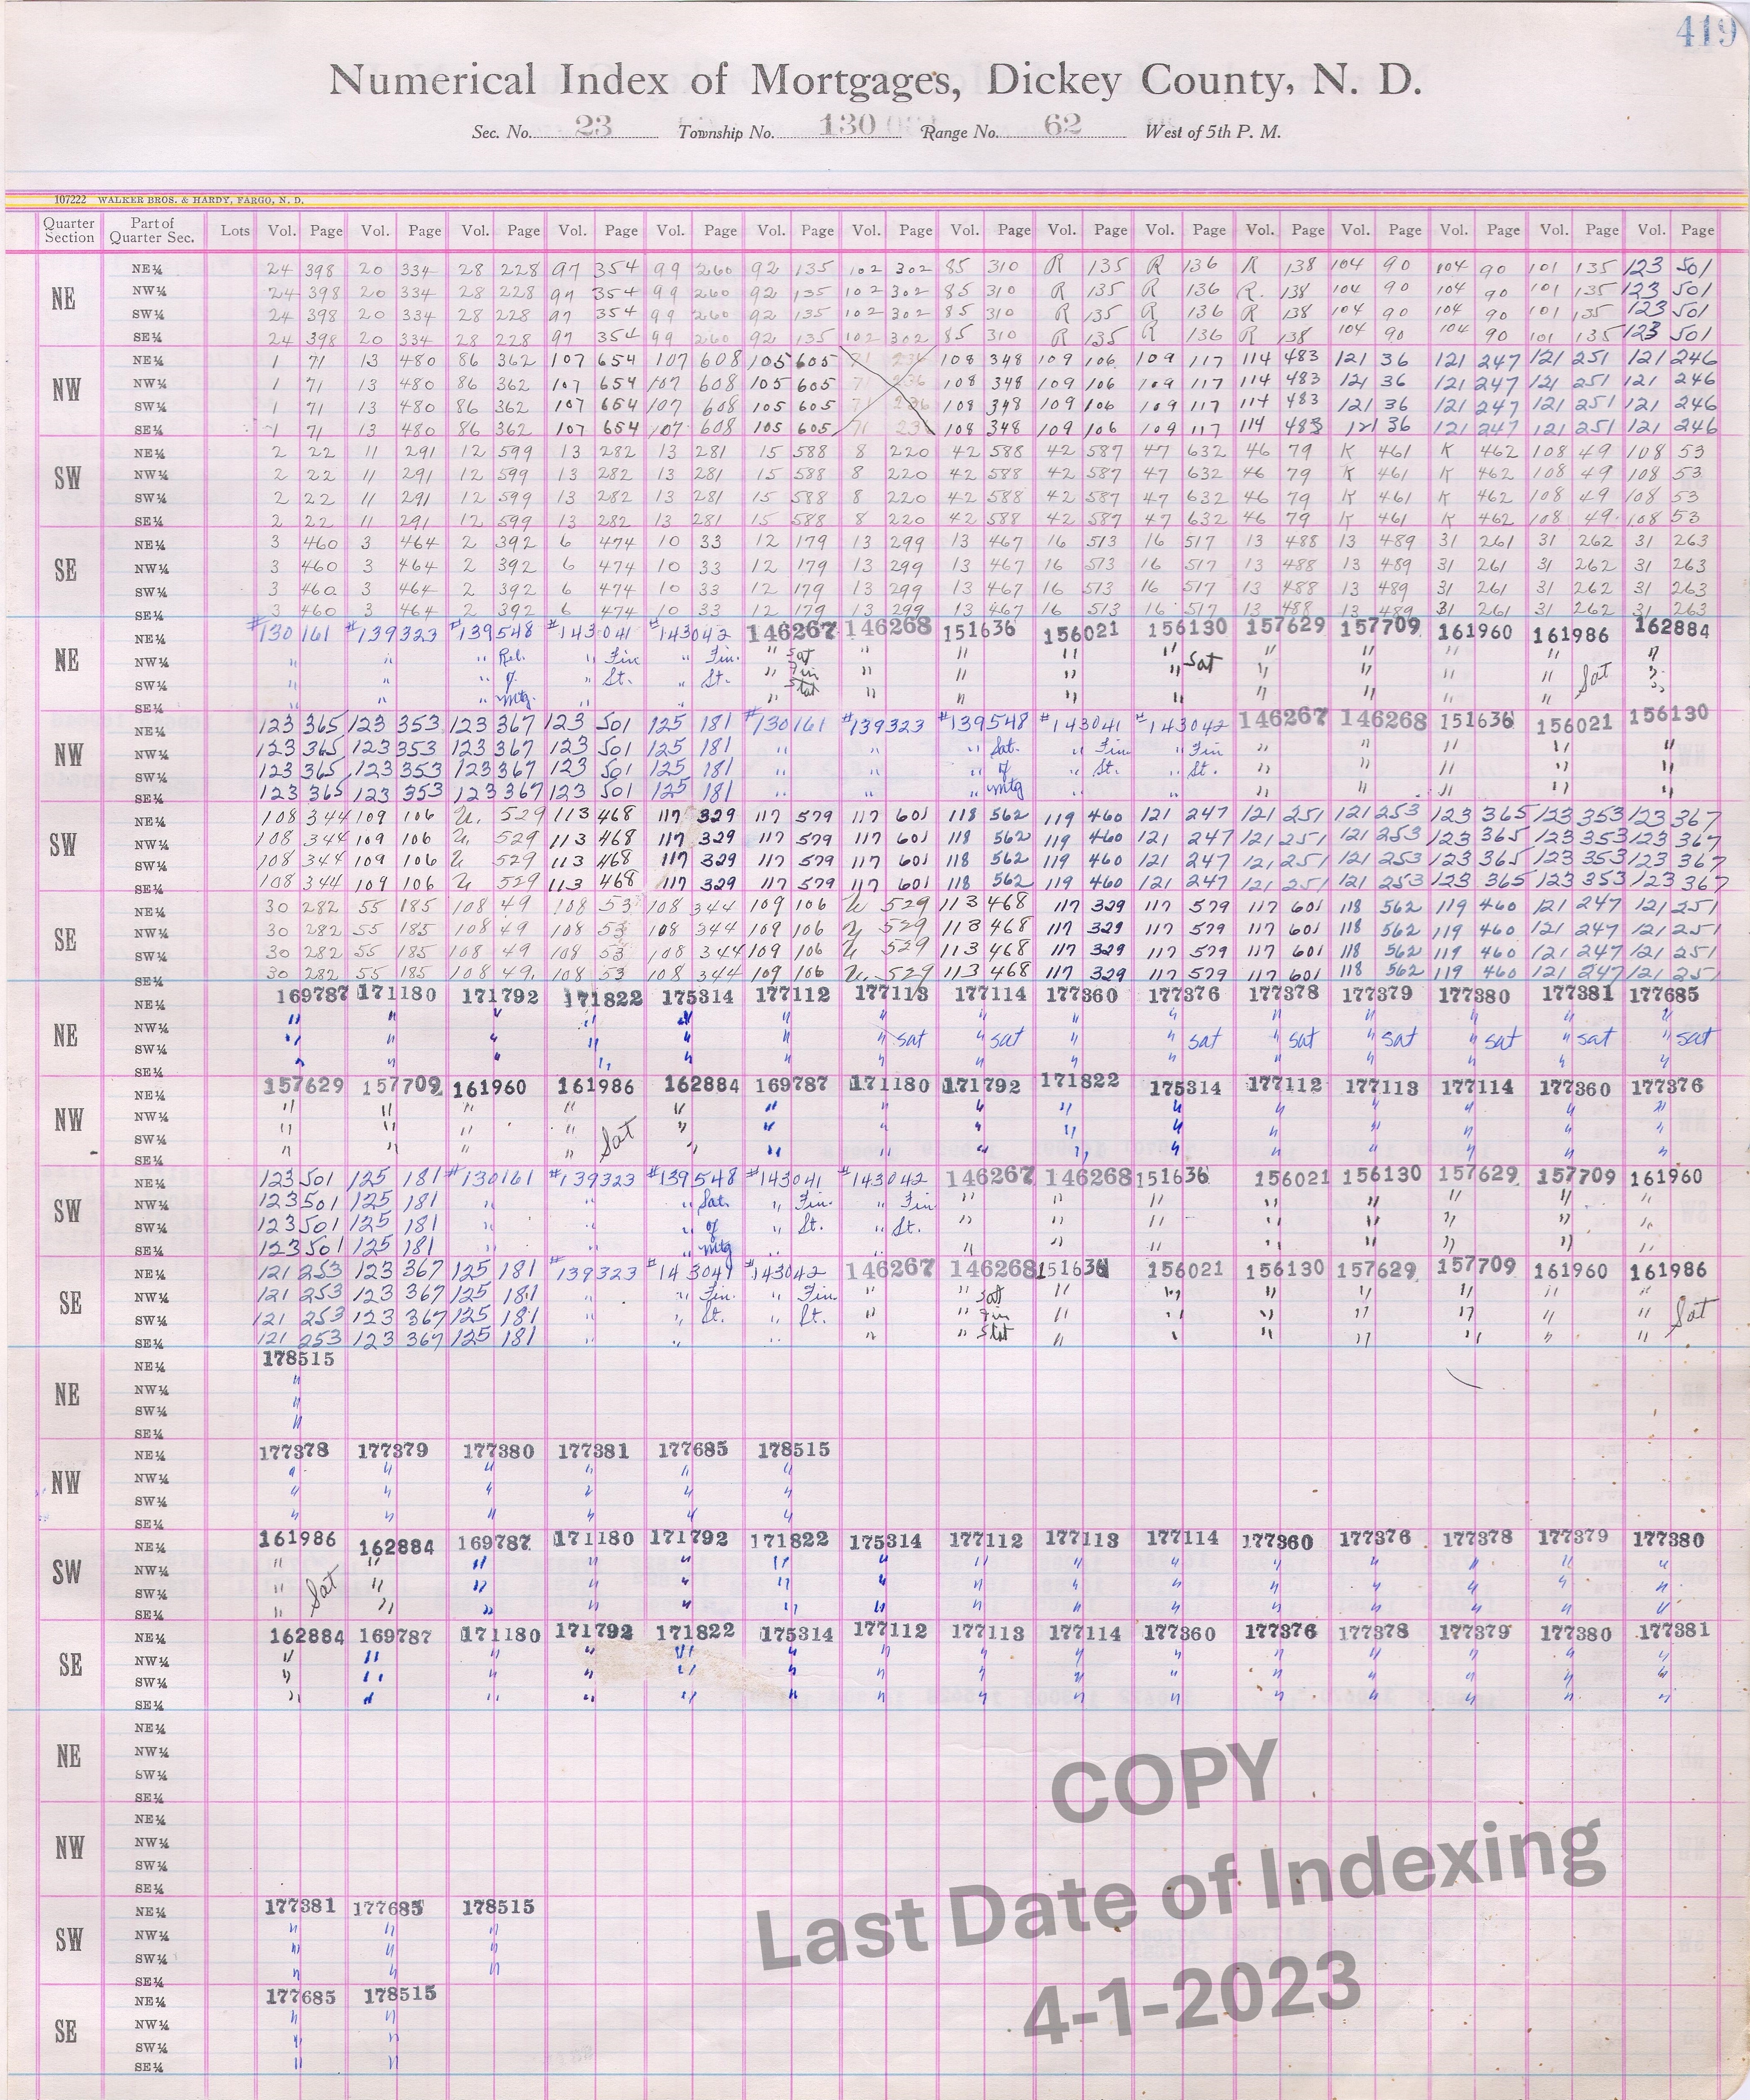 419
Numerical Index of Mortgages, Dickey County, N. D.
Sec. No. 23 Township No. 130 Range No. 62 West of 5th P. M.
107222 WALKER BROS. & HARDY, FARGO, N. D.
Quarter Section Part of Quarter Sec. Lots Vol. Page Vol. Page Vol. Page Vol. Page Vol. Page Vol. Page Vol. Page Vol. Page Vol. Page Vol. Page Vol. Page Vol. Page Vol. Page Vol. Page Vol. Page
NE
NE¼ 24 398 20 334 28 228 97 354 99 260 92 135 102 302 85 310 R 135 R 136 R 138 104 90 104 90 101 135 123 501
NW¼ 24 398 20 334 28 228 97 354 99 260 92 135 102 302 85 310 R 135 R 136 R. 138 104 90 104 90 101 135 123 501
SW¼ 24 398 20 334 28 228 97 354 99 260 92 135 102 302 85 310 R 135 R 136 R 138 104 90 104 90 101 135 123 501
SE¼ 24 398 20 334 28 228 97 354 99 260 92 135 102 302 85 310 R 135 R 136 R 138 104 90 104 90 101 135 123 501
NW
NE¼ 1 71 13 480 86 362 107 654 107 608 105 605 71 236 108 348 109 106 109 117 114 483 121 36 121 247 121 251 121 246
NW¼ 1 71 13 480 86 362 107 654 107 608 105 605 71 236 108 348 109 106 109 117 114 483 121 36 121 247 121 251 121 246
SW¼ 1 71 13 480 86 362 107 654 107 608 105 605 71 236 108 348 109 106 109 117 114 483 121 36 121 247 121 251 121 246
SE¼ 1 71 13 480 86 362 107 654 107 608 105 605 71 236 108 348 109 106 109 117 114 483 121 36 121 247 121 251 121 246
SW
NE¼ 2 22 11 291 12 599 13 282 13 281 15 588 8 220 42 588 42 587 47 632 46 79 K 461 K 462 108 49 108 53
NW¼ 2 22 11 291 12 599 13 282 13 281 15 588 8 220 42 588 42 587 47 632 46 79 K 461 K 462 108 49 108 53
SW¼ 2 22 11 291 12 599 13 282 13 281 15 588 8 220 42 588 42 587 47 632 46 79 K 461 K 462 108 49 108 53
SE¼ 2 22 11 291 12 599 13 282 13 281 15 588 8 220 42 588 42 587 47 632 46 79 K 461 K 462 108 49 108 53
SE
NE¼ 3 460 3 464 2 392 6 474 10 33 12 179 13 299 13 467 16 513 16 517 13 488 13 489 31 261 31 262 31 263
NW¼ 3 460 3 464 2 392 6 474 10 33 12 179 13 299 13 467 16 513 16 517 13 488 13 489 31 261 31 262 31 263
SW¼ 3 460 3 464 2 392 6 474 10 33 12 179 13 299 13 467 16 513 16 517 13 488 13 489 31 261 31 262 31 263
SE¼ 3 460 3 464 2 392 6 474 10 33 12 179 13 299 13 467 16 513 16 517 13 488 13 489 31 261 31 262 31 263
NE
NE¼ #130161 #139323 #139548 #143041 #143042 146267 146268 151636 156021 156130 157629 157709 161960 161986 162884
NW¼ " " " Rel. " Fin " Fin. " Sat " " " " Sat " " " " "
SW¼ " " " of " St. " St. " Fin " " " " " " " " Sat "
SE¼ " " " Mtg. " " " Stat " " " " " " " " "
NW
NE¼ 123 365 123 353 123 367 123 501 125 181 #130161 #139323 #139548 #143041 #143042 146267 146268 151636 156021 156130
NW¼ 123 365 123 353 123 367 123 501 125 181 " " " Sat. " Fin " Fin " " " " "
SW¼ 123 365 123 353 123 367 123 501 125 181 " " " of " St. " St. " " " " "
SE¼ 123 365 123 353 123 367 123 501 125 181 " " " Mtg " " " " " " "
SW
NE¼ 108 344 109 106 U. 529 113 468 117 329 117 579 117 601 118 562 119 460 121 247 121 251 121 253 123 365 123 353 123 367
NW¼ 108 344 109 106 U. 529 113 468 117 329 117 579 117 601 118 562 119 460 121 247 121 251 121 253 123 365 123 353 123 367
SW¼ 108 344 109 106 U 529 113 468 117 329 117 579 117 601 118 562 119 460 121 247 121 251 121 253 123 365 123 353 123 367
SE¼ 108 344 109 106 U 529 113 468 117 329 117 579 117 601 118 562 119 460 121 247 121 251 121 253 123 365 123 353 123 367
SE
NE¼ 30 282 55 185 108 49 108 53 108 344 109 106 U 529 113 468 117 329 117 579 117 601 118 562 119 460 121 247 121 251
NW¼ 30 282 55 185 108 49 108 53 108 344 109 106 U 529 113 468 117 329 117 579 117 601 118 562 119 460 121 247 121 251
SW¼ 30 282 55 185 108 49 108 53 108 344 109 106 U 529 113 468 117 329 117 579 117 601 118 562 119 460 121 247 121 251
SE¼ 30 282 55 185 108 49. 108 53 108 344 109 106 U. 529 113 468 117 329 117 579 117 601 118 562 119 460 121 247 121 251
NE
NE¼ 169787 171180 171792 171822 175314 177112 177113 177114 177360 177376 177378 177379 177380 177381 177685
NW¼ " " " " " " " " " " " " " " "
SW¼ " " " " " " " sat " sat " " sat " sat " sat " sat " sat " sat
SE¼ " " " " " " " " " " " " " " "
NW
NE¼ 157629 157709 161960 161986 162884 169787 171180 171792 171822 175314 177112 177113 177114 177360 177376
NW¼ " " " " " " " " " " " " " " "
SW¼ " " " " Sat " " " " " " " " " " "
SE¼ " " " " " " " " " " " " " " "
SW
NE¼ 123 501 125 181 #130161 #139323 #139548 #143041 #143042 146267 146268 151636 156021 156130 157629 157709 161960
NW¼ 123 501 125 181 " " " Sat. " Fin. " Fin " " " " " " " "
SW¼ 123 501 125 181 " " " of " St. " St. " " " " " " " "
SE¼ 123 501 125 181 " " " Mtg " " " " " " " " " "
SE
NE¼ 121 253 123 367 125 181 #139323 #143041 #143042 146267 146268 151636 156021 156130 157629 157709 161960 161986
NW¼ 121 253 123 367 125 181 " " Fin. " Fin. " " Sat " " " " " " "
SW¼ 121 253 123 367 125 181 " " St. " St. " " Fin " " " " " " " Sat
SE¼ 121 253 123 367 125 181 " " " " " Stat " " " " " " "
NE
NE¼ 178515
NW¼ "
SW¼ "
SE¼ "
NW
NE¼ 177378 177379 177380 177381 177685 178515
NW¼ " " " " " "
SW¼ " " " " " "
SE¼ " " " " " "
SW
NE¼ 161986 162884 169787 171180 171792 171822 175314 177112 177113 177114 177360 177376 177378 177379 177380
NW¼ " " " " " " " " " " " " " " "
SW¼ " Sat " " " " " " " " " " " " " "
SE¼ " " " " " " " " " " " " " " "
SE
NE¼ 162884 169787 171180 171792 171822 175314 177112 177113 177114 177360 177376 177378 177379 177380 177381
NW¼ " " " " " " " " " " " " " " "
SW¼ " " " " " " " " " " " " " " "
SE¼ " " " " " " " " " " " " " " "
NE
NE¼
NW¼
SW¼
SE¼
NW
NE¼
NW¼
SW¼
SE¼
SW
NE¼ 177381 177685 178515
NW¼ " " "
SW¼ " " "
SE¼ " " "
SE
NE¼ 177685 178515
NW¼ " "
SW¼ " "
SE¼ " "
COPY
Last Date of Indexing
4-1-2023